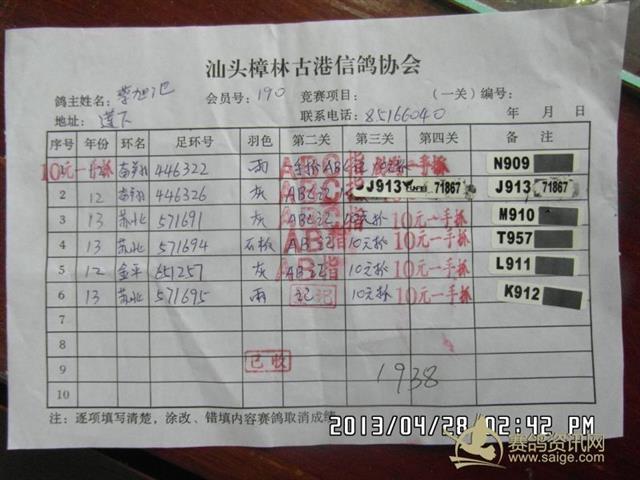 汕头樟林古港信鸽协会
鸽主姓名: 会员号: 190 竞赛项目: (一关) 编号:
地址: 莲下 联系电话: 85166040 年 月 日
序号 年份 环名 足环号 羽色 第二关 第三关 第四关 备 注
10元一手抓 446322 雨 ABC指 N909
2 12 446326 灰 J913 71867 J913 71867
3 13 苏北 571691 灰 10元一手抓 M910
4 13 苏北 571694 石板 AB指 10元抓 10元一手抓 T957
5 12 金平 651257 灰 10元抓 10元一手抓 L911
6 13 苏北 571695 雨 10元抓 10元一手抓 K912
7
8
9 已收 1938
10
注: 逐项填写清楚,涂改、错填内容赛鸽取消成绩
2013/04/28 02:42 PM
赛鸽资讯网
www.saige.com